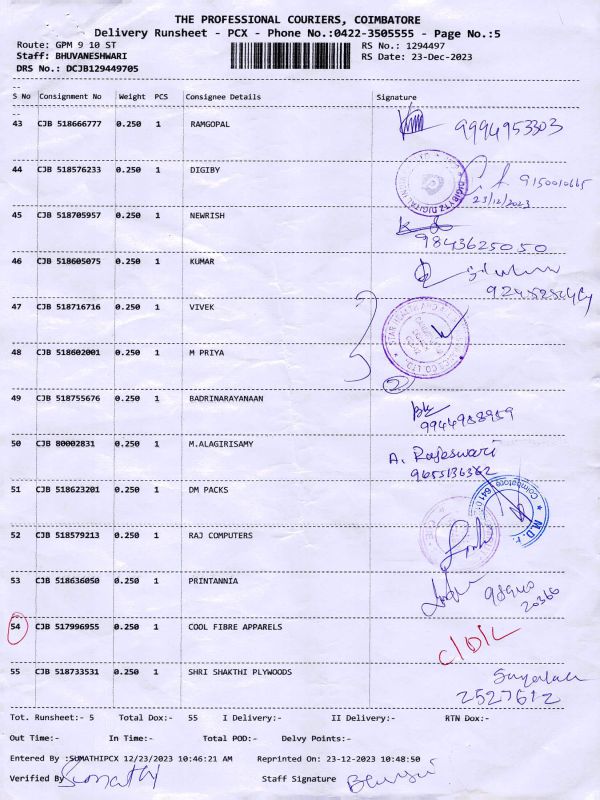 THE PROFESSIONAL COURIERS, COIMBATORE
Delivery Runsheet - PCX - Phone No.:0422-3505555 - Page No.:5
Route: GPM 9 10 ST RS No.: 1294497
Staff: BHUVANESHWARI RS Date: 23-Dec-2023
DRS No.: DCJB129449705
S No Consignment No Weight PCS Consignee Details Signature
43 CJB 518666777 0.250 1 RAMGOPAL 9994953303
44 CJB 518576233 0.250 1 DIGIBY 9150010665
23/12/2023
45 CJB 518705957 0.250 1 NEWRISH
9843625050
46 CJB 518605075 0.250 1 KUMAR
47 CJB 518716716 0.250 1 VIVEK
48 CJB 518602001 0.250 1 M PRIYA
2
49 CJB 518755676 0.250 1 BADRINARAYANAAN
9944958959
50 CJB 80002831 0.250 1 M.ALAGIRISAMY A. Rajeswari
9655136362
51 CJB 518623201 0.250 1 DM PACKS
52 CJB 518579213 0.250 1 RAJ COMPUTERS
53 CJB 518636050 0.250 1 PRINTANNIA 98940
20366
54 CJB 517996955 0.250 1 COOL FIBRE APPARELS C/D/L
55 CJB 518733531 0.250 1 SHRI SHAKTHI PLYWOODS
2527612
Tot. Runsheet:- 5 Total Dox:- 55 I Delivery:- II Delivery:- RTN Dox:-
Out Time:- In Time:- Total POD:- Delvy Points:-
Entered By :SUMATHIPCX 12/23/2023 10:46:21 AM Reprinted On: 23-12-2023 10:48:50
Verified By Sumathy Staff Signature